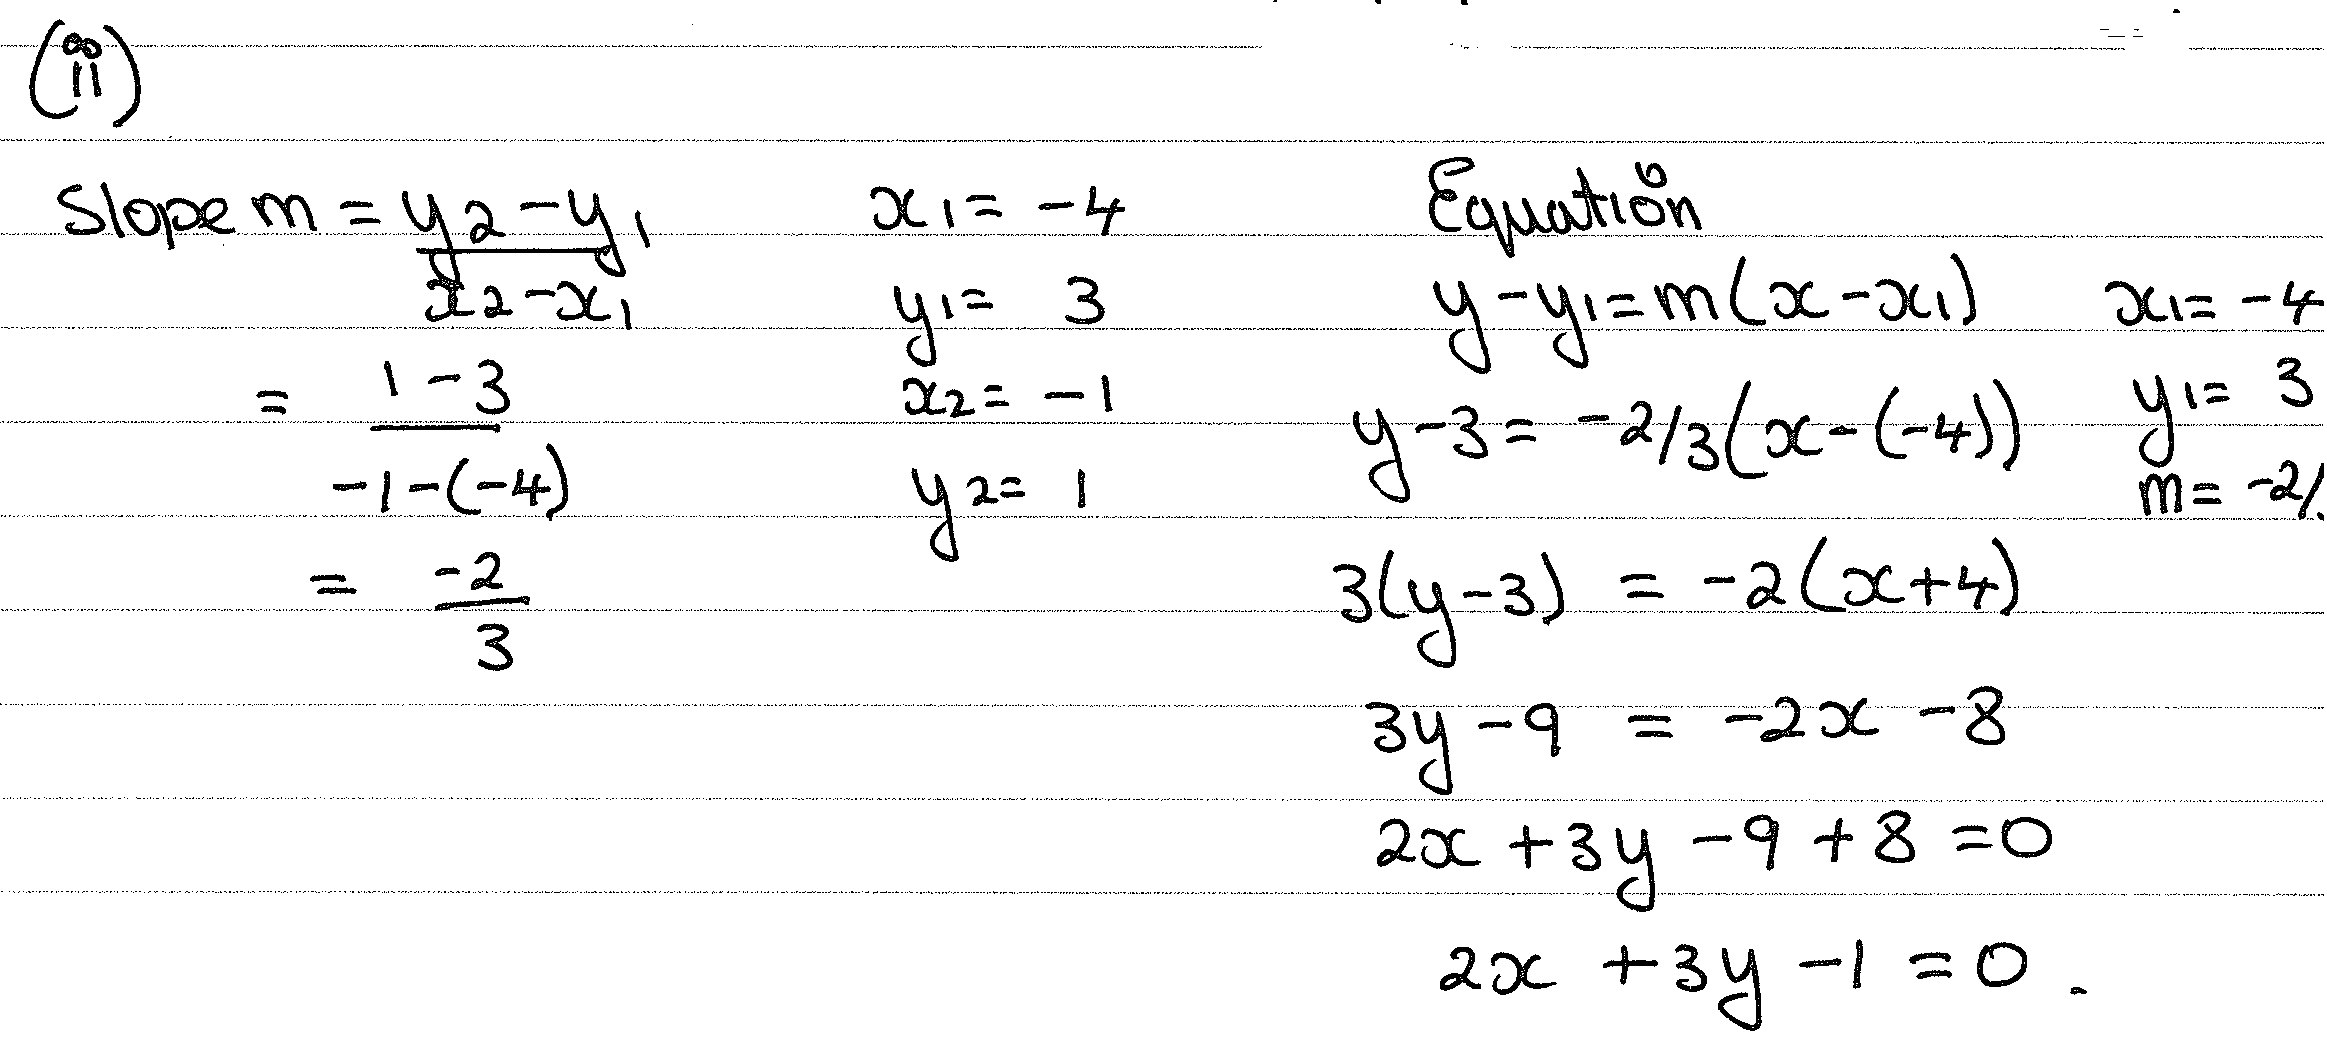 (ii)
Slope m = y2 - y1
x2 - x1
= 1 - 3
-1 - (-4)
= -2
3
x1 = -4
y1 = 3
x2 = -1
y2 = 1
Equation
y - y1 = m(x - x1)
y - 3 = -2/3(x - (-4))
3(y - 3) = -2(x + 4)
3y - 9 = -2x - 8
2x + 3y - 9 + 8 = 0
2x + 3y - 1 = 0.
x1 = -4
y1 = 3
m = -2/